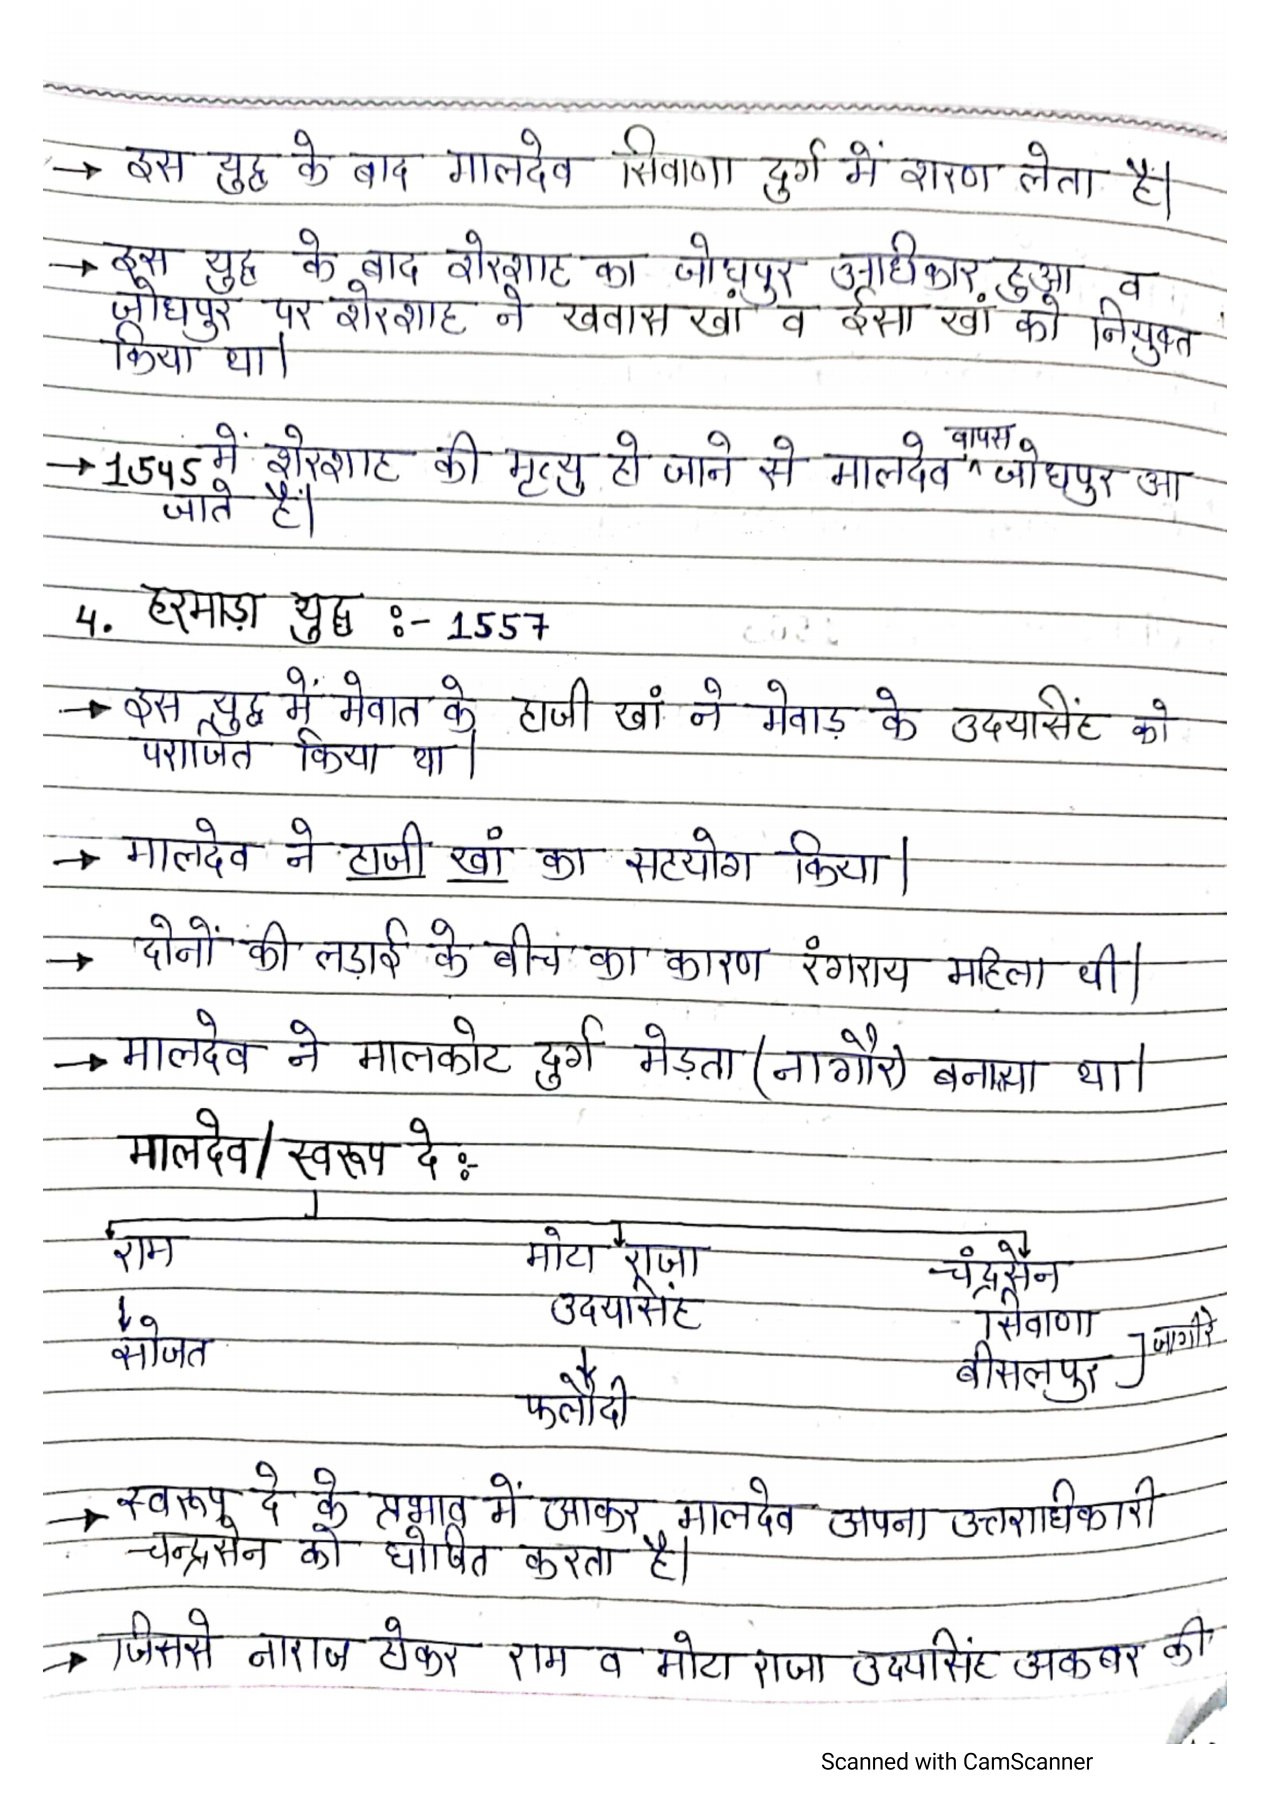 → इस युद्ध के बाद मालदेव सिवाणा दुर्ग में शरण लेता है।
→ इस युद्ध के बाद शेरशाह का जोधपुर अधिकार हुआ व
जोधपुर पर शेरशाह ने खवास खां व ईसा खां को नियुक्त
किया था।
→ 1545 में शेरशाह की मृत्यु हो जाने से मालदेव ^वापस जोधपुर आ
जाते हैं।
4. हरमाड़ा युद्ध :- 1557
→ इस युद्ध में मेवात के हाजी खां ने मेवाड़ के उदयसिंह को
पराजित किया था।
→ मालदेव ने हाजी खां का सहयोग किया।
→ दोनों की लड़ाई के बीच का कारण रंगराय महिला थी।
→ मालदेव ने मालकोट दुर्ग मेड़ता (नागौर) बनाया था।
मालदेव/स्वरूप दे :-
राम मोटा राजा चंद्रसेन
उदयसिंह सिवाणा
↓ सोजत बीसलपुर ] जागीरे
↓
फलौदी
→ स्वरूप दे के प्रभाव में आकर मालदेव अपना उत्तराधिकारी
चन्द्रसेन को घोषित करता है।
→ जिससे नाराज होकर राम व मोटा राजा उदयसिंह अकबर की
Scanned with CamScanner